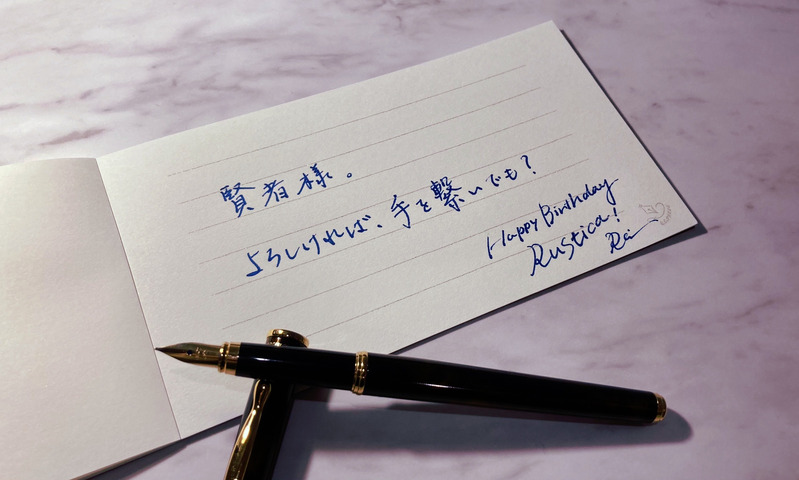 賢者様。
よろしければ、手を繋いでも？
Happy Birthday
Rustica!